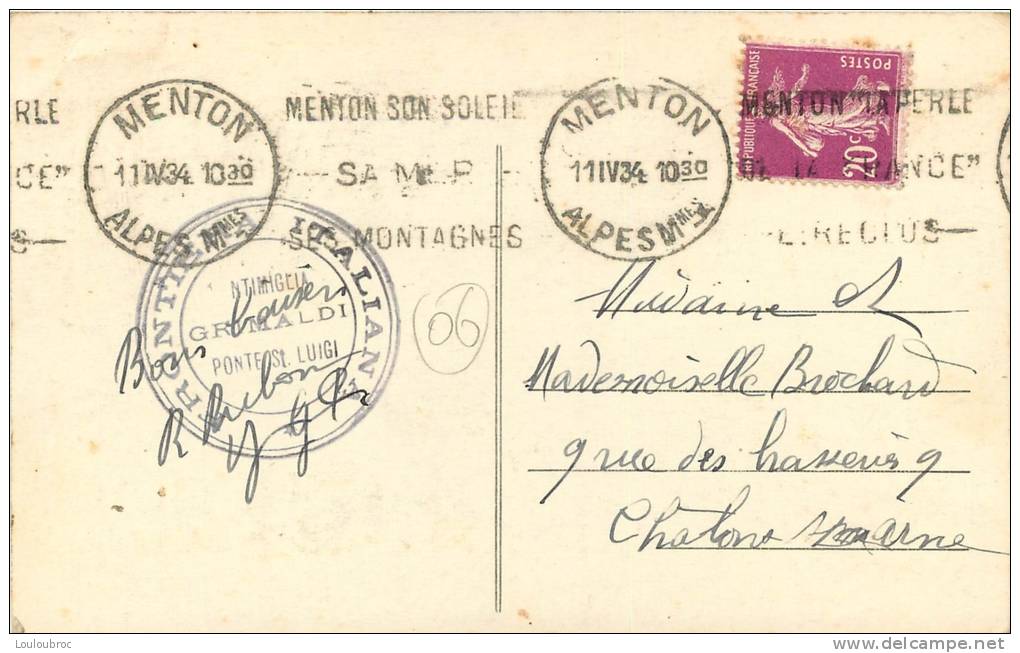 RLE
CE"
S
MENTON
11 IV 34 10 30
ALPES Mmes
MENTON SON SOLEIL
SA MER
SES MONTAGNES
MENTON
11 IV 34 10 30
ALPES Mmes
MENTON "LA PERLE
DE LA FRANCE"
E. RECLUS
REPUBLIQUE FRANÇAISE
POSTES
20c
FRONTIERE ITALIANA
NTIMIGLIA
GRIMALDI
PONTE St. LUIGI
Bons baisers
R
06
Madame &
Mademoiselle Brochard
9 rue des 9
Chalons s/marne
Louloubroc
http://www.delcampe.net